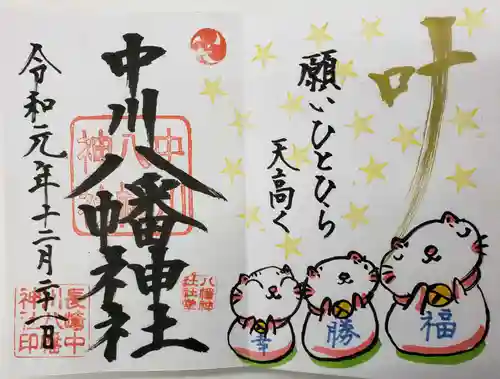 叶
願いひとひら
天高く
幸
勝
福
福
中川八幡神社
令和元年十二月二十八日
中川
八幡
神社
八幡神
社社掌
長崎中
川八幡
神社印